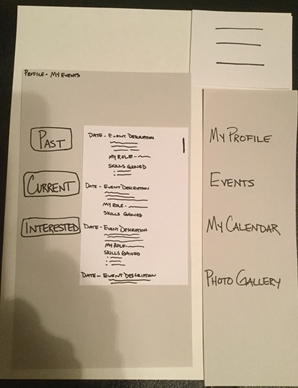 PROFILE - MY EVENTS
PAST
CURRENT
INTERESTED
DATE - EVENT DESCRIPTION
MY ROLE -
SKILLS GAINED
DATE - EVENT DESCRIPTION
MY ROLE -
SKILLS GAINED
DATE - EVENT DESCRIPTION
MY ROLE -
SKILLS GAINED
DATE - EVENT DESCRIPTION
MY PROFILE
EVENTS
MY CALENDAR
PHOTO GALLERY